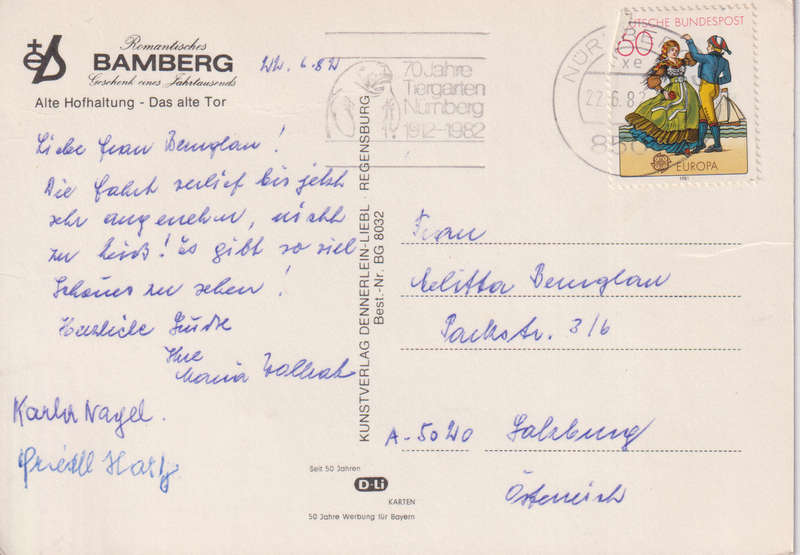 Romantisches
BAMBERG
Geschenk eines Jahrtausends
Alte Hofhaltung - Das alte Tor
22. 6. 82
70 Jahre
Tiergarten
Nürnberg
1912-1982
22.-6.82
850
DEUTSCHE BUNDESPOST
50
EUROPA
1981
Liebe Frau
Die Fahrt verlief bis jetzt
sehr angenehm, nicht
zu heiß! Es gibt so viel
Schönes zu sehen!
Herzliche Grüße
Ihre
Maria
Karla Nagel.
KUNSTVERLAG DENNERLEIN-LIEBL · REGENSBURG
Best.-Nr. BG 8032
Frau
Melitta
Parkstr. 3/6
A-5020 Salzburg
Österreich
Seit 50 Jahren
D-Li
KARTEN
50 Jahre Werbung für Bayern